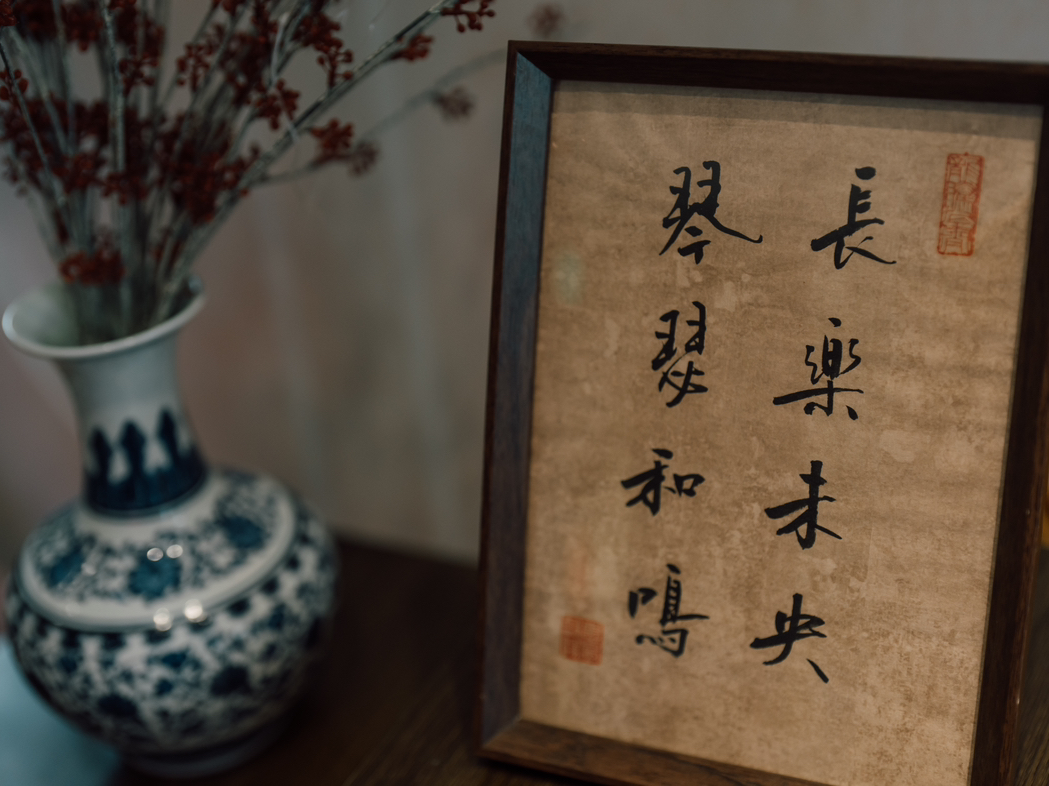 長樂未央
琴瑟和鳴